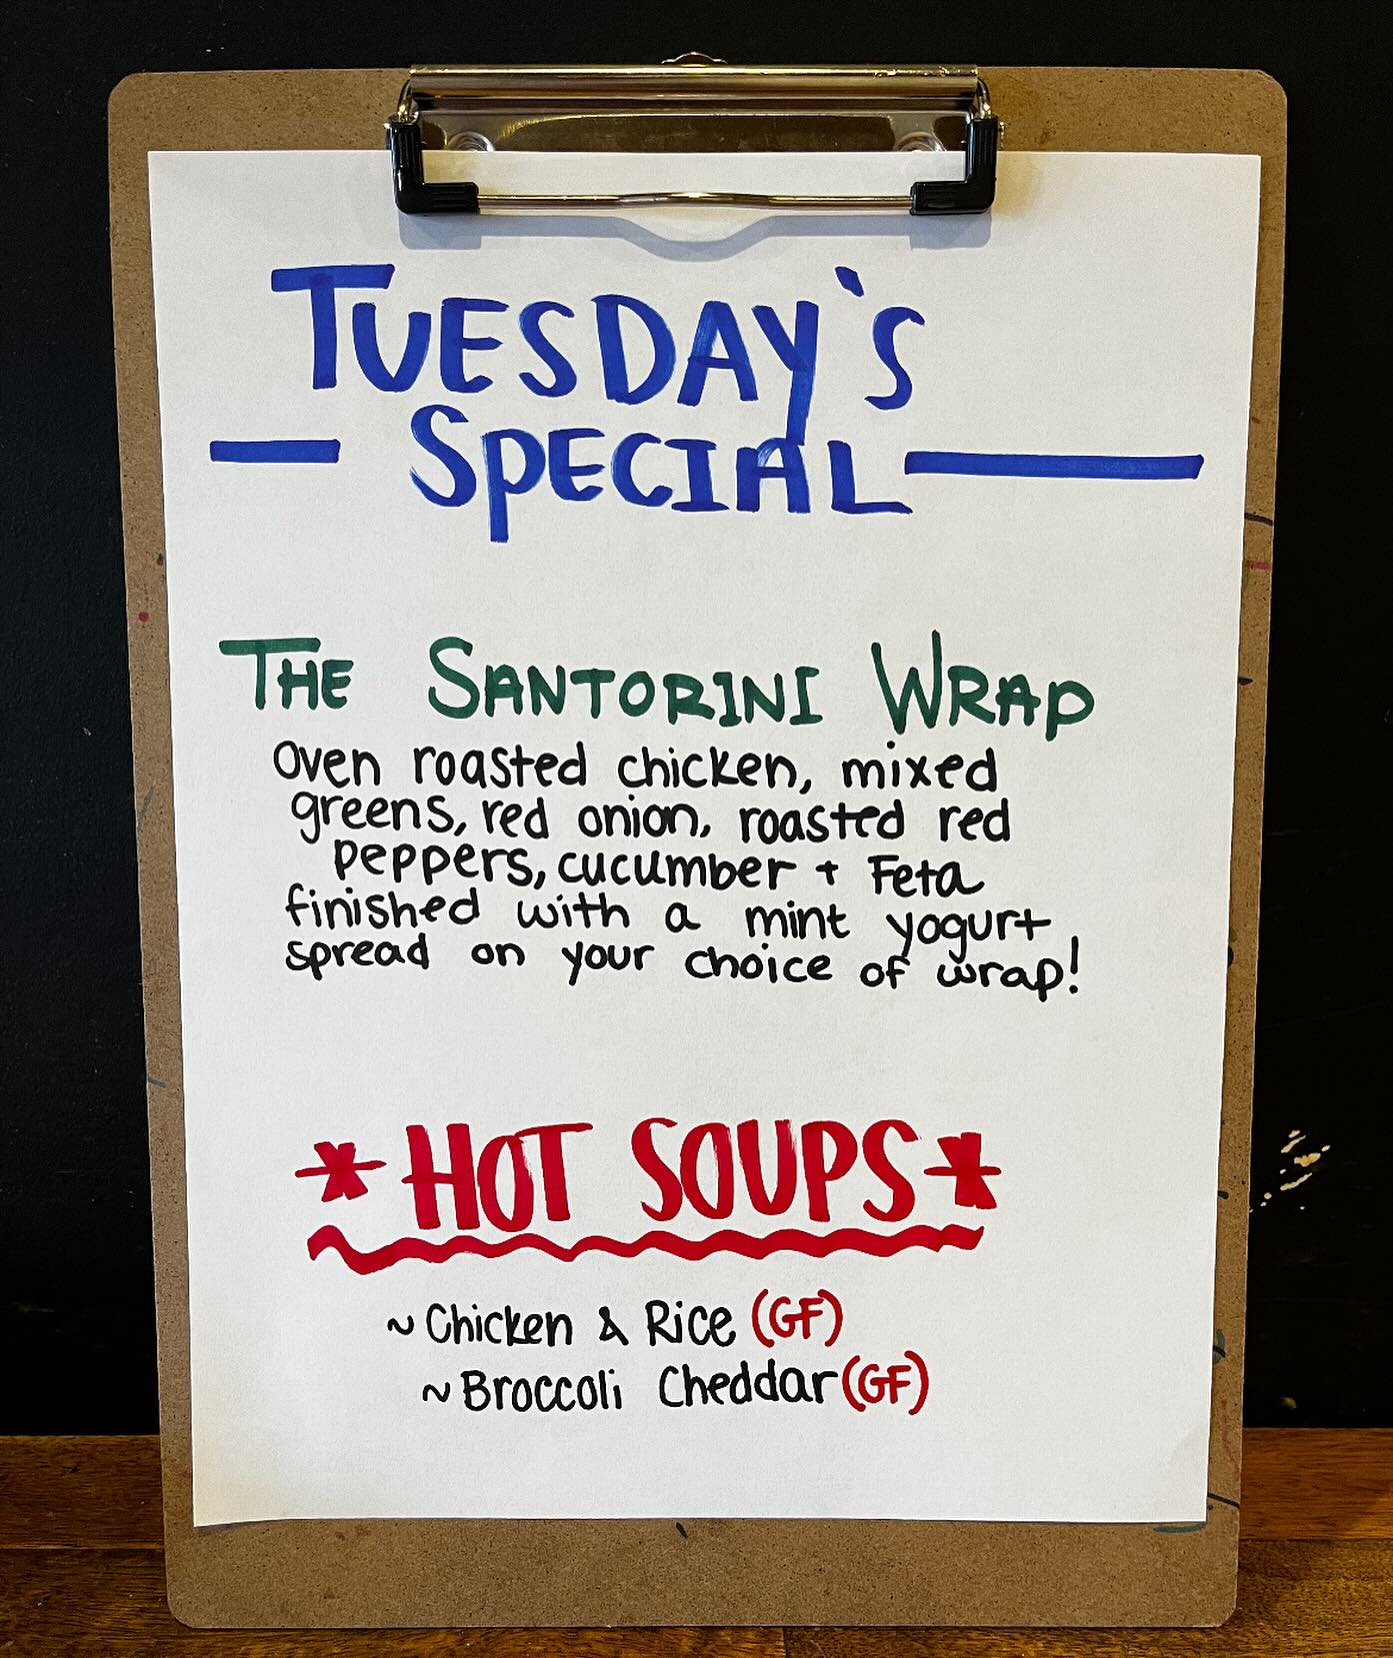 TUESDAY'S
— SPECIAL —
THE SANTORINI WRAP
Oven roasted chicken, mixed
greens, red onion, roasted red
peppers, cucumber + Feta
finished with a mint yogurt
spread on your choice of wrap!
*HOT SOUPS*
~ Chicken & Rice (GF)
~ Broccoli Cheddar (GF)